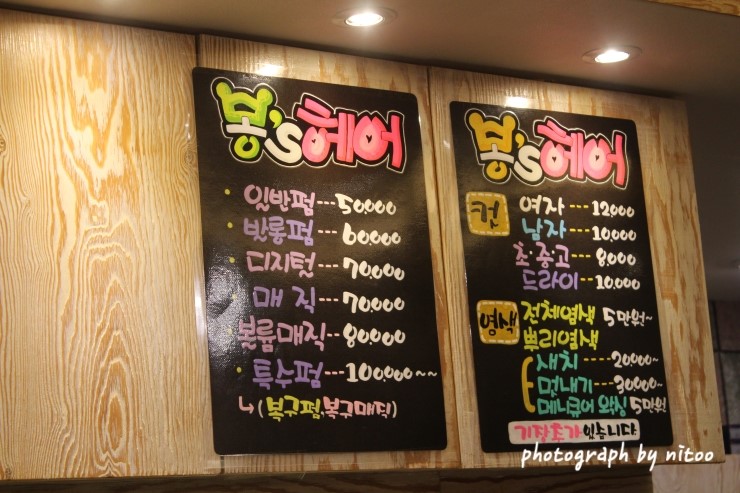 봉's헤어
일반펌---50,000
밧롱펌---60,000
디지털---70,000
매직---70,000
볼륨매직--80000
특수펌---100.000~~
↳(복구펌,복구매직)
봉's헤어
컷 여자---12,000
남자---10,000
초·중·고---8000
드라이--10,000
염색 전체염색 5만원~
뿌리염색
새치----20000~
멋내기---30000~
메니큐어 왁싱 5만원
기장추가있습니다
photograph by nitoo